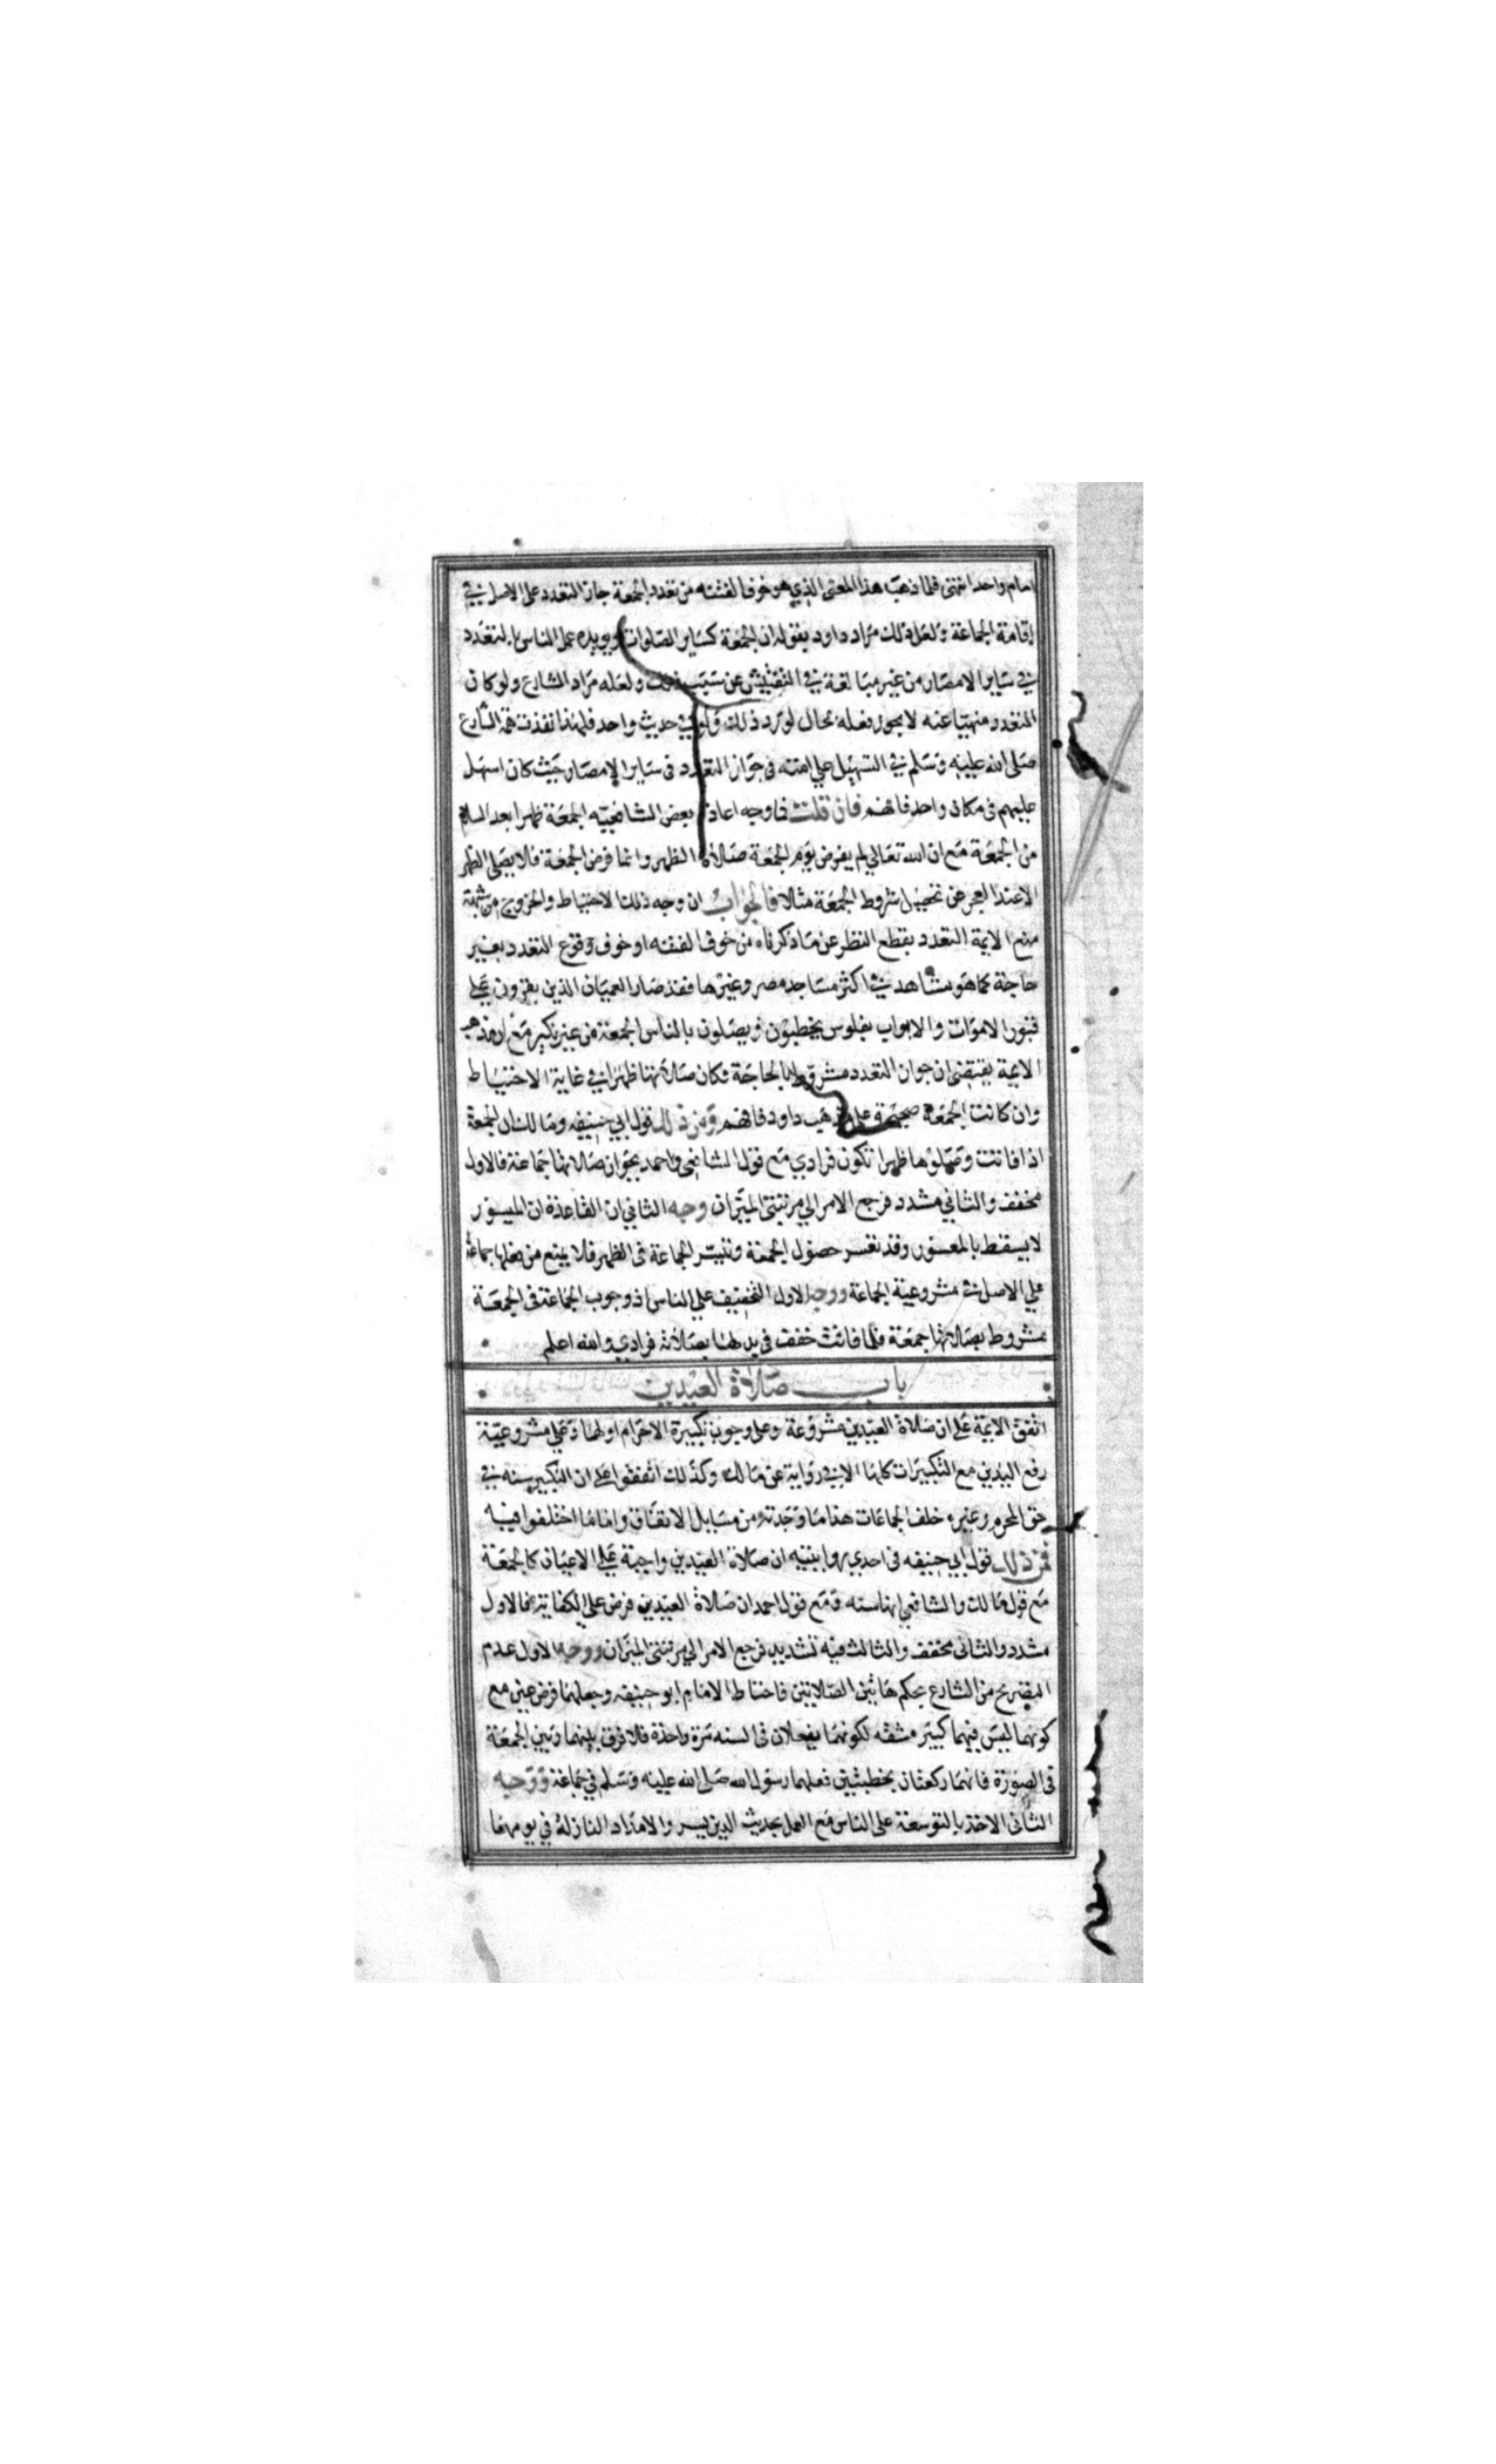 امام واحد انتهى فلما ذهب هذا المعنى الذي هو خوف الفتنه من تعدد الجمعة جاز التعدد على الاصل في
اقامة الجماعة ولعل ذلك مراد داود بقوله ان الجمعة كساير الصلوات ويويده عمل الناس بالتعدد
في ساير الامصار من غير مبالغة في التفتيش عن سبب ذلك ولعله مراد الشارع ولو كان
التعدد منهيا عنه لا يجوز فعله بحال لورد ذلك ولو في حديث واحد فلهذا نفذت همة الشارع
صلى الله عليه وسلم في التسهيل علي امته في جواز التعدد في ساير الامصار حيث كان اسهل
عليهم في مكان واحد فافهم فان قلت فما وجه اعادة بعض الشافعيه الجمعة ظهرا بعد السلام
من الجمعة مع ان الله تعالي لم يفرض يوم الجمعة صلاة الظهر وانما فرض الجمعة فلا يصلى الظهر
الا عند العجز عن تحصيل شروط الجمعة مثلا فالجواب ان وجه ذلك الاحتياط والخروج من شبهة
منع الايمة التعدد بقطع النظر عن ما ذكرناه من خوف الفتنه او خوف وقوع التعدد بغير
حاجة كما هو مشاهد في اكثر مساجد مصر وغيرها فقد صار العميان الذين يقرون علي
قبور الاموات والابواب بفلوس يخطبون ويصلون بالناس الجمعة من غير نكير مع ان مذهب
الايمة يقتضي ان جواز التعدد مشروط بالحاجة فكان صلاتها ظهرا في غاية الاحتياط
وان كانت الجمعة صحيحة على مذهب داود فافهم ومن ذلك قول ابي حنيفه ومالك ان الجمعة
اذا فاتت وصلوها ظهرا تكون فرادي مع قول الشافعي واحمد بجواز صلاتها جماعة فالاول
مخفف والثاني مشدد فرجع الامر الي مرتبتي الميزان وجه الثاني ان القاعدة ان الميسور
لا يسقط بالمعسور وقد تعسر حصول الجمعة وتيسر الجماعة في الظهر فلا يمنع من فعلها جماعة
علي الاصل في مشروعية الجماعة ووجه الاول التخفيف علي الناس اذ وجوب الجماعة في الجمعة
مشروط بصلاتها جمعة فلما فاتت خفف في بدلها بصلاته فرادي والله اعلم
باب صلاة العيدين
اتفق الايمة علي ان صلاة العيدين مشروعة وعلى وجوب تكبيرة الاحرام اولها وعلي مشروعية
رفع اليدين مع التكبيرات كلها الا في رواية عن مالك وكذلك اتفقوا علي ان التكبير سنه في
حق المحرم وغيره خلف الجماعات هذا ما وجدته من مسايل الاتفاق واما ما اختلفوا فيه
فمن ذلك قول ابي حنيفه في احدي روايتيه ان صلاة العيدين واجبة علي الاعيان كالجمعة
مع قول مالك والشافعي انها سنه ومع قول احمد ان صلاة العيدين فرض علي الكفاية فالاول
مشدد والثاني مخفف والثالث فيه تشديد فرجع الامر الي مرتبتي الميزان ووجه الاول عدم
التصريح من الشارع بحكم هاتين الصلاتين فاحتاط الامام ابو حنيفه وجعلهما فرض عين مع
كونهما ليس فيهما كبير مشقه لكونهما يفعلان في السنه مرة واحدة فلا فرق بينهما وبين الجمعة
في الصورة فانهما ركعتان بخطبتين فعلهما رسول الله صلى الله عليه وسلم في جماعة ووجه
الثاني الاخذ بالتوسعة على الناس مع العمل بحديث الدين يسر والامداد النازلة في يومهما